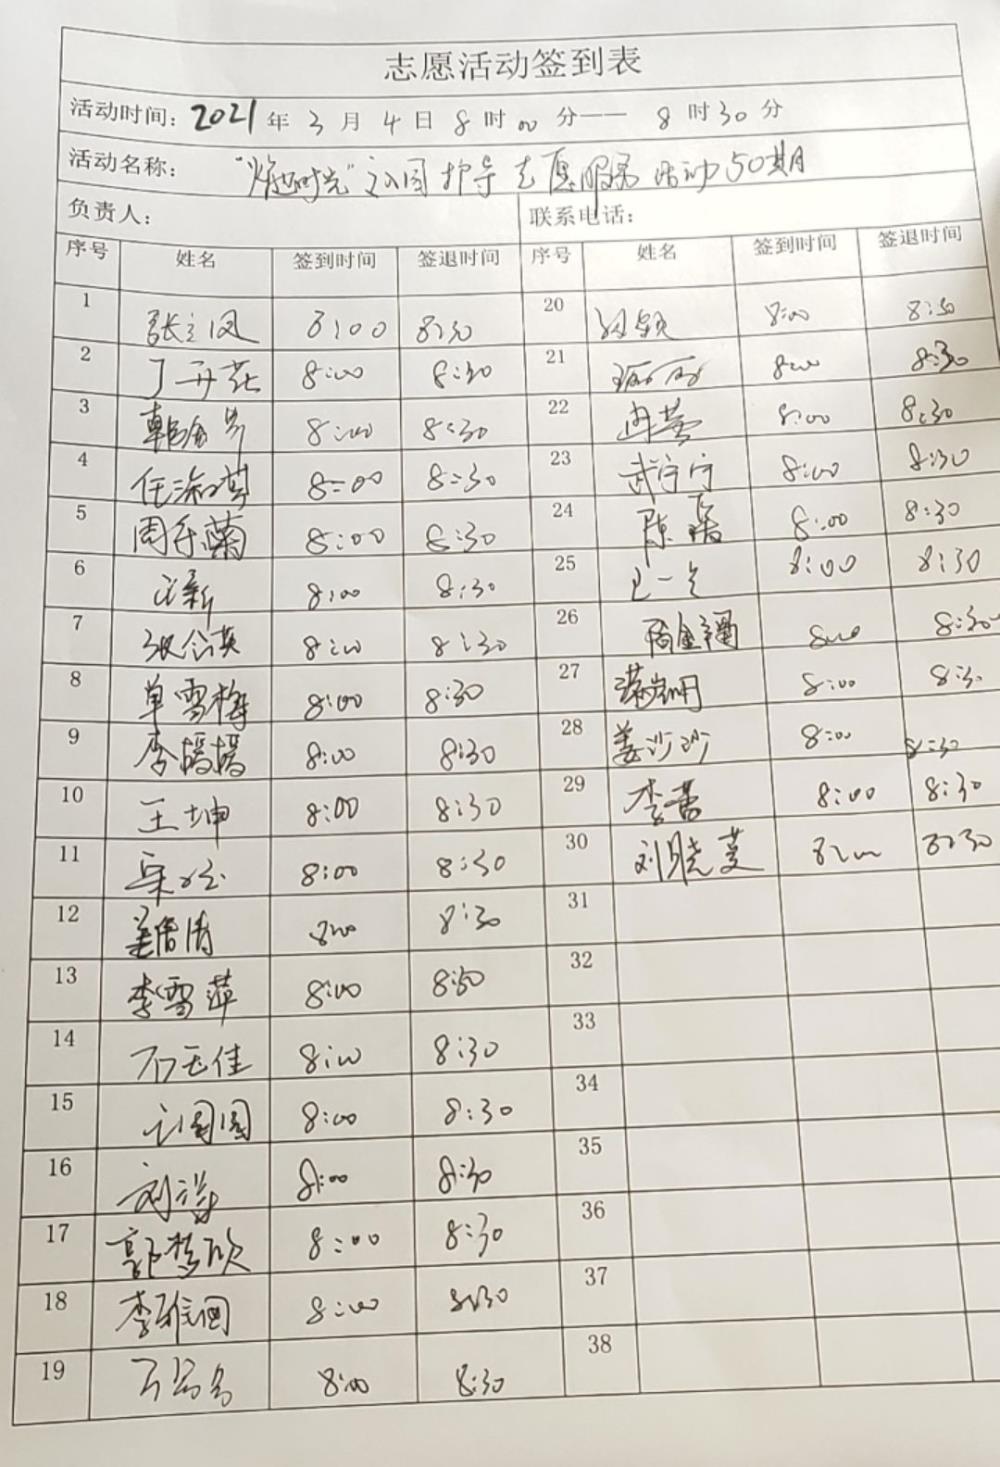 志愿活动签到表
活动时间：2021年3月4日8时00分——8时30分
活动名称：时光" 入园护导志愿服务活动50期
负责人： 联系电话：
序号 姓名 签到时间 签退时间 序号 姓名 签到时间 签退时间
1 张立凤 8:00 8:30 20 8:00 8:30
2 丁开花 8:00 8:30 21 8:00 8:30
3 8:00 8:30 22 冉蕾 8:00 8:30
4 任淑萍 8:00 8:30 23 武宁宁 8:00 8:30
5 周乐菊 8:00 8:30 24 8:00 8:30
6 8:00 8:30 25 8:00 8:30
7 8:00 8:30 26 8:00 8:30
8 单雪梅 8:00 8:30 27 8:00 8:30
9 李嫣嫣 8:00 8:30 28 姜沙沙 8:00 8:30
10 王坤 8:00 8:30 29 李蕾 8:00 8:30
11 8:00 8:30 30 刘晓蔓 8:00 8:30
12 8:00 8:30 31
13 李雪萍 8:00 8:30 32
14 石玉佳 8:00 8:30 33
15 圆圆 8:00 8:30 34
16 刘洋 8:00 8:30 35
17 郭梦欣 8:00 8:30 36
18 李雅 8:00 8:30 37
19 8:00 8:30 38